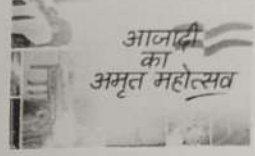 आजादी
का
अमृत महोत्सव